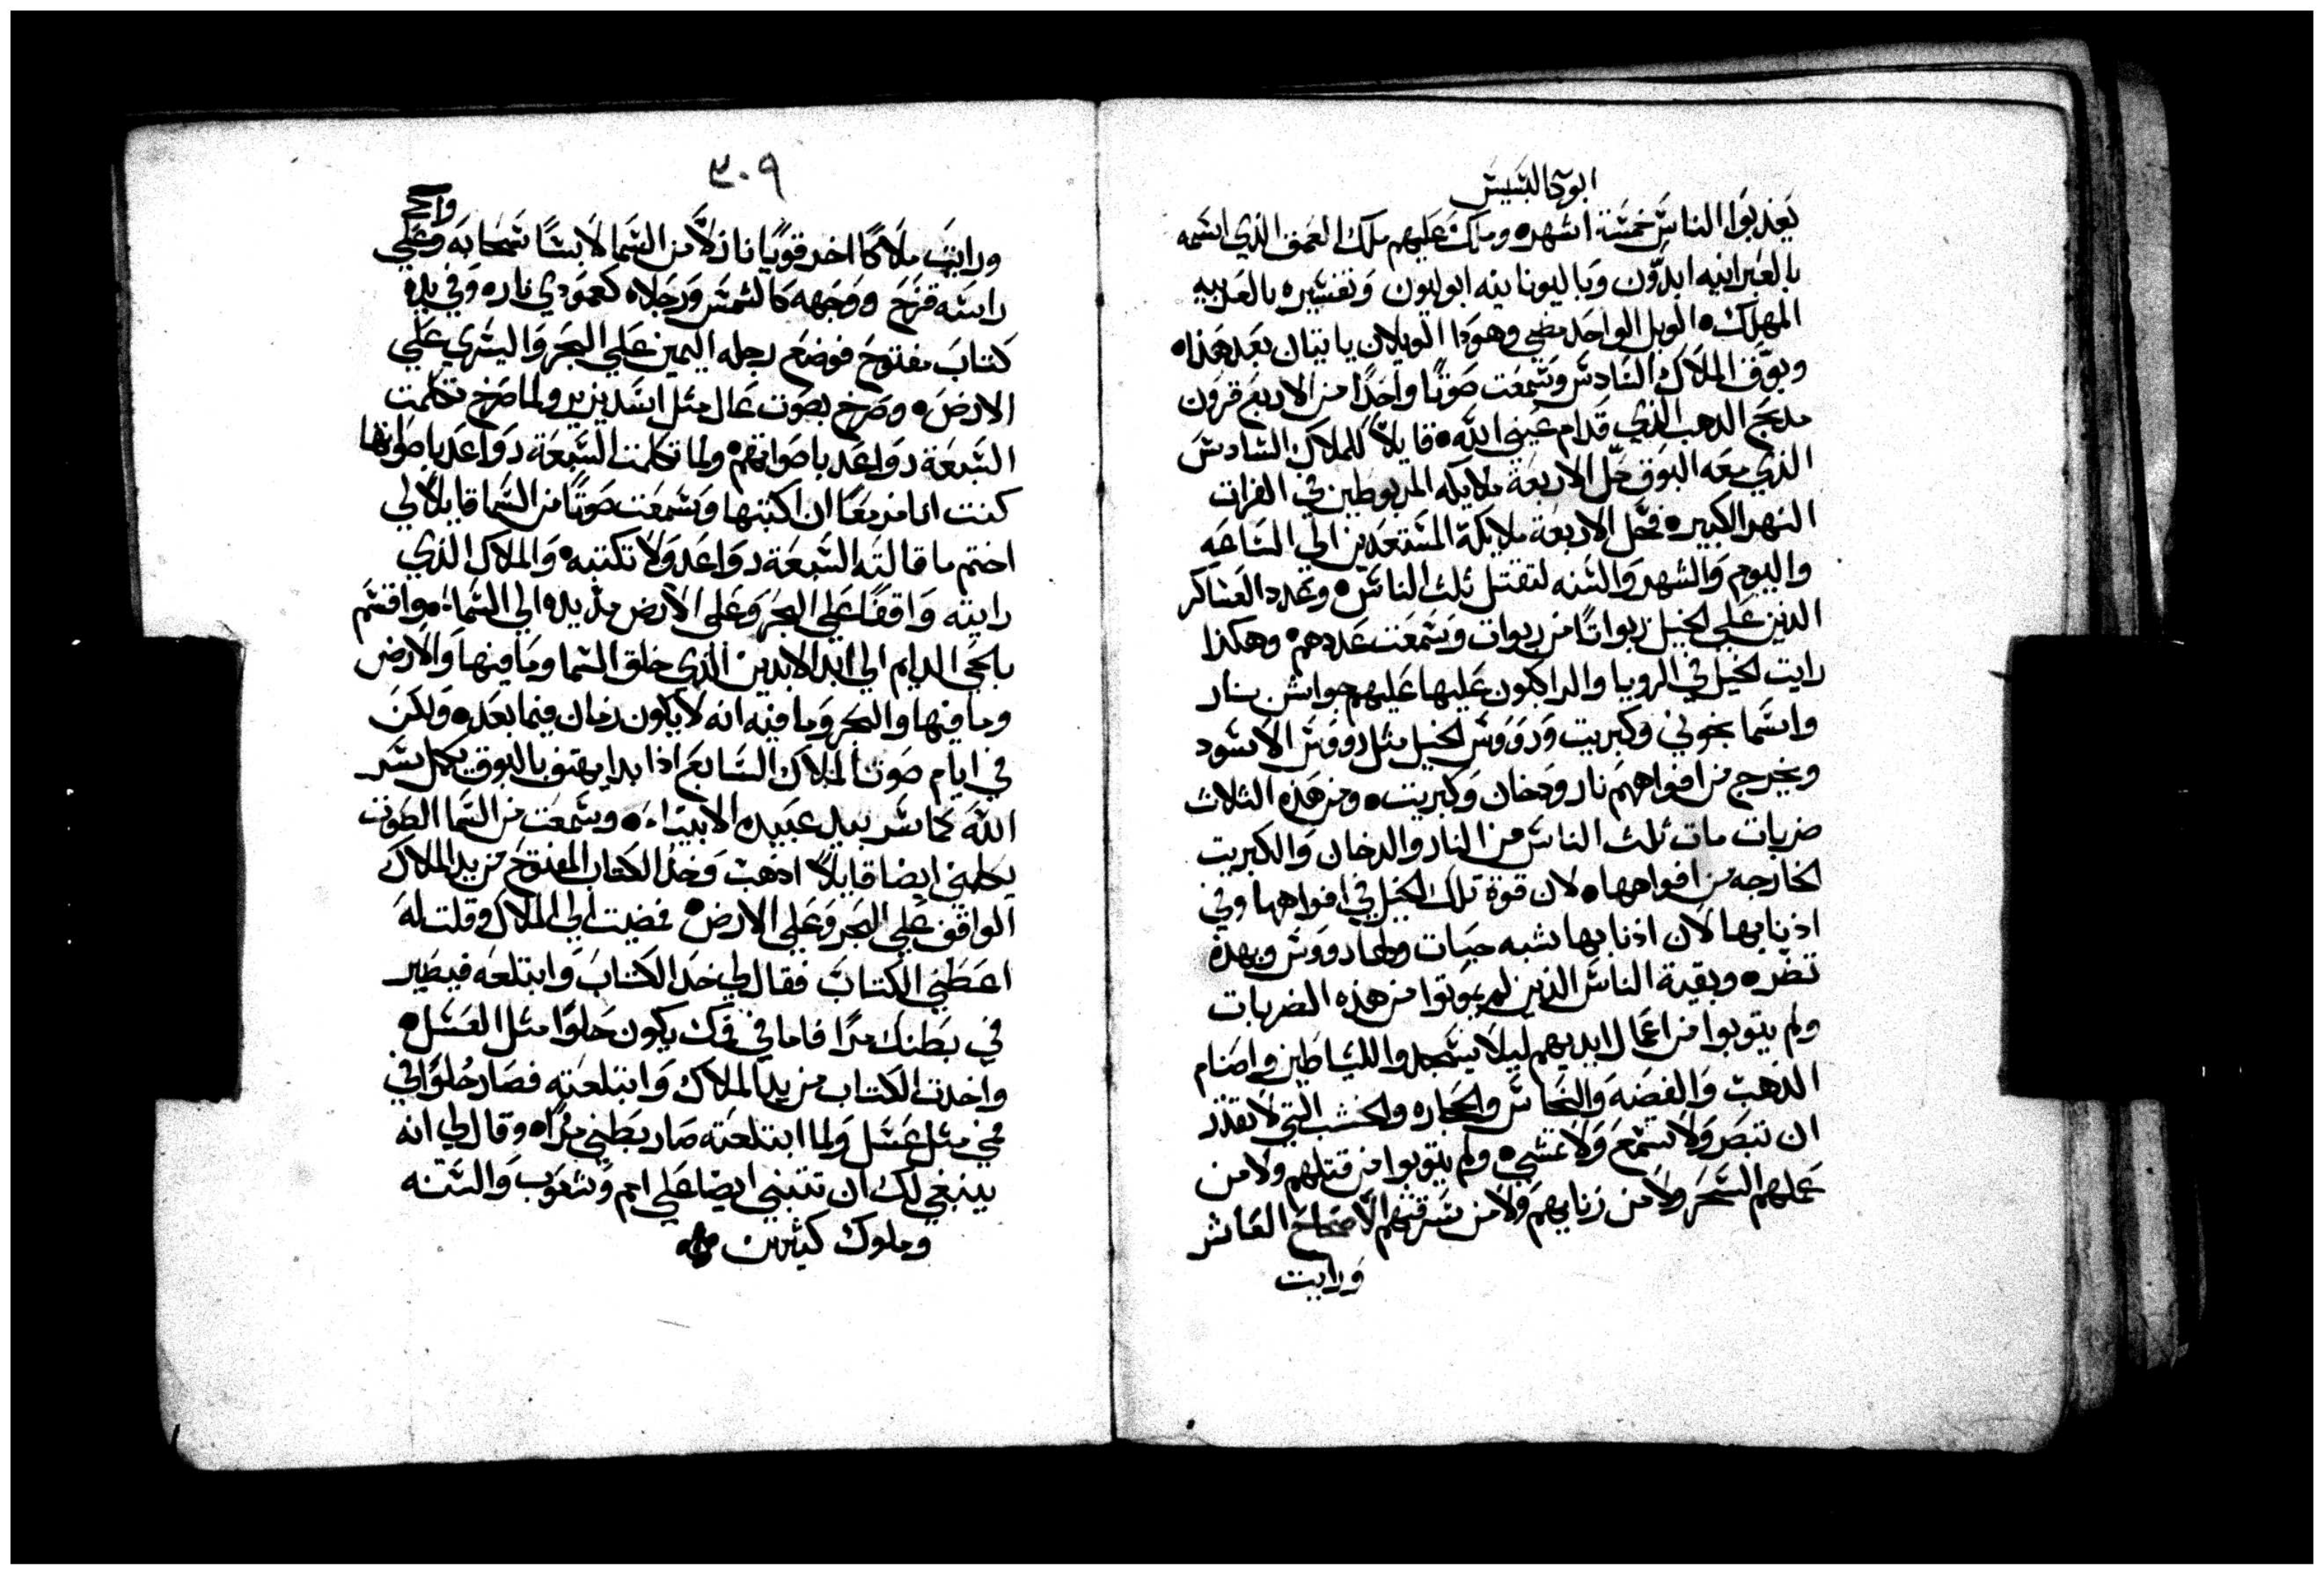 ابوكالبسيس
يعذبوا الناس خمسة اشهر ه وملك عليهم ملك العمق الذي اسمه
بالعبرانيه ابدّون وباليونانيه ابوليون وتفسيره بالعربيه
المهلك ه الويل الواحد مضي وهوذا الويلان ياتيان بعد هذا ه
وبوّق الملاك السادس وسمعت صوتًا واحدًا من الاربع قرون
مدبح الدهب الذي قدام عيني الله ه قايلاً للملاك السادس
الذي معه البوق حلّ الاربعة ملايكه المربوطين في الفرات
النهر الكبير ه فحل الاربعة ملايكة المستعدين الي الساعه
واليوم والشهر والسنه لتقتل ثلث الناس ه وعدد العساكر
الذين علي الخيل ربواتًا من ربوات وسمعت عددهم ه وهكذا
رايت الخيل في الرويا والراكبون عليها عليهم جواشن نار
واسما نجوني وكبريت ورووس الخيل مثل رووس الاسود
ويخرج من افواههم نار ودخان وكبريت ه ومن هذه الثلاث
ضربات مات ثلث الناس من النار والدخان والكبريت
الخارجه من افواهها ه لان قوة تلك الخيل في افواهها وفي
اذنابها لان اذنابها بشبه حيات ولها رووس وبهذه
تضر ه وبقية الناس الذين لم يموتوا من هذه الضربات
ولم يتوبوا من اعمال ايديهم ليلا يسجدوا للشياطين واصنام
الذهب والفضه والنحاس والحجاره والخشب التي لا تقدر
ان تبصر ولا تسمع ولا تمشي ه ولم يتوبوا من قتلهم ولا من
عملهم السحر ولا من زنايهم ولا من سرقتهم الاصحاح العاشر
ورايت
٣٠٩
ورايت ملاكًا اخر قويًا نازلاً من السما لابسًا سحابه وعلي
راسه قزح ووجهه كالشمس ورجلاه كعمودي نار ه وفي يده
كتاب مفتوح فوضع رجله اليمين علي البحر واليسري علي
الارض ه وصرخ بصوت عال مثل اسد يزير ولما صرخ تكلمت
السبعة رواعد باصواتهم ه ولما تكلمت السبعة رواعد باصواتها
كنت انا مزمعًا ان اكتبها وسمعت صوتًا من السما قايلاً لي
اختم ما قالته السبعة رواعد ولا تكتبه ه والملاك الذي
رايته واقفًا علي البحر وعلي الارض مدّ يده الي السما ه واقسم
بالحي الدايم الي ابد الابدين الذي خلق السما وما فيها والارض
وما فيها والبحر وما فيه انه لا يكون زمان فيما بعد ه ولكن
في ايام صوت الملاك السابع اذا بدا يهتف بالبوق يكمل سر
الله كما بشر بيد عبيده الانبيا ه وسمعت من السما الصوت
يكلمني ايضا قايلاً اذهب وخذ الكتاب المفتوح من يد الملاك
الواقف علي البحر وعلي الارض ه فمضيت الي الملاك وقلت له
اعطني الكتاب فقال لي خذ الكتاب وابتلعه فيصير
في بطنك مرًا فاما في فمك يكون حلوًا مثل العسل ه
واخدت الكتاب من يد الملاك وابتلعته فصار حلوًا في
فمي مثل عسل ولما ابتلعته صار بطني مرًا ه وقال لي انه
ينبغي لك ان تتنبي ايضا علي امم وشعوب والسنه
وملوك كثيرين